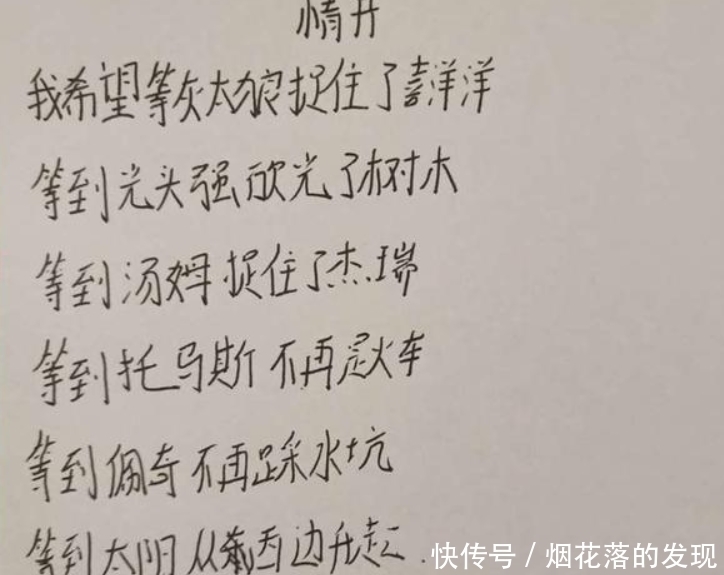 情开
我希望等灰太狼捉住了喜洋洋
等到光头强砍光了树木
等到汤姆捉住了杰瑞
等到托马斯不再是火车
等到佩奇不再踩水坑
等到太阳从西边升起.
快传号/烟花落的发现